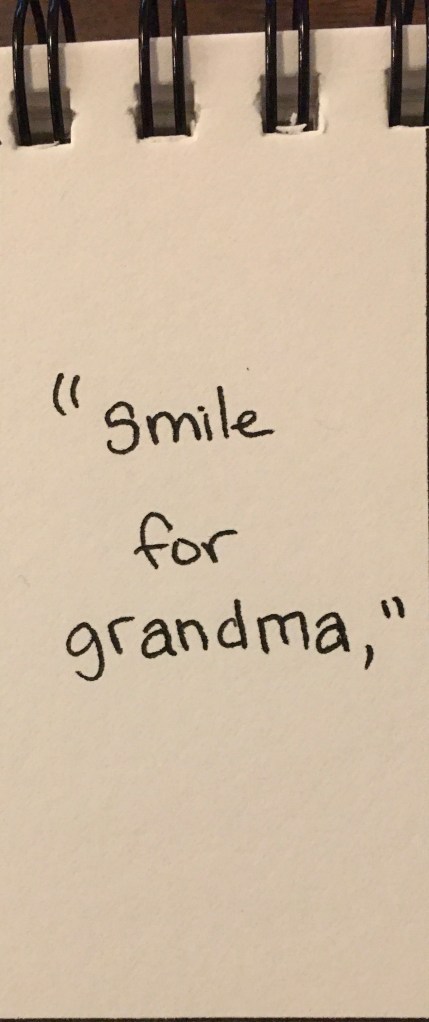 "smile
for
grandma,"